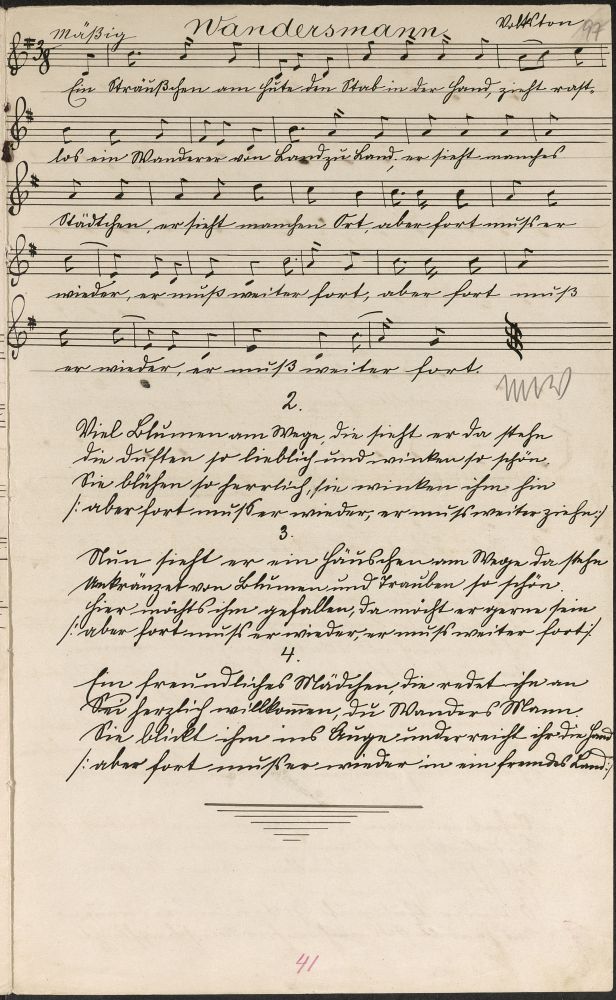 Mäßig Wandersmann. Volkston 97
Ein Sträußchen am Hute den Stab in der Hand, zieht rast-
los ein Wanderer von Land zu Land, er sieht manches
Städtchen, er sieht manchen Ort, aber fort muss er
wieder, er muß weiter fort, aber fort muß
er wieder, er muß weiter fort.
2.
Viel Blumen am Wege, die sieht er da stehn
die duften so lieblich und winken so schön.
Sie blühen so herrlich, sie winken ihm hin
/: aber fort muss er wieder, er muss weiter ziehn :/
3.
Nun sieht er ein Häuschen am Wege da stehn
Umkränzet von Blumen und Trauben so schön
hier möchts ihm gefallen, da möcht er gerne sein
/: aber fort muss er wieder, er muss weiter fort :/
4.
Ein freundliches Mädchen, die redet ihn an
Sei herzlich willkommen, du Wanders Mann.
Sie blickt ihm ins Auge und er reicht ihr die Hand
/: aber fort muss er wieder in ein fremdes Land :/
41